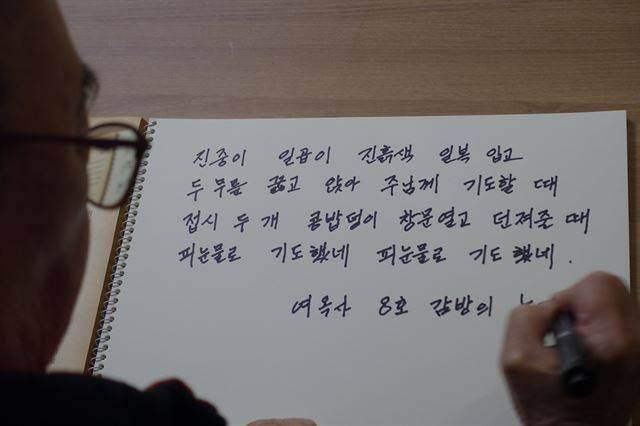 진중이 일곱이 진흙색 일복 입고
두 무릎 꿇고 앉아 주님께 기도할 때
접시 두 개 콩밥덩이 창문열고 던져줄 때
피눈물로 기도했네 피눈물로 기도했네.
여옥사 8호 감방의